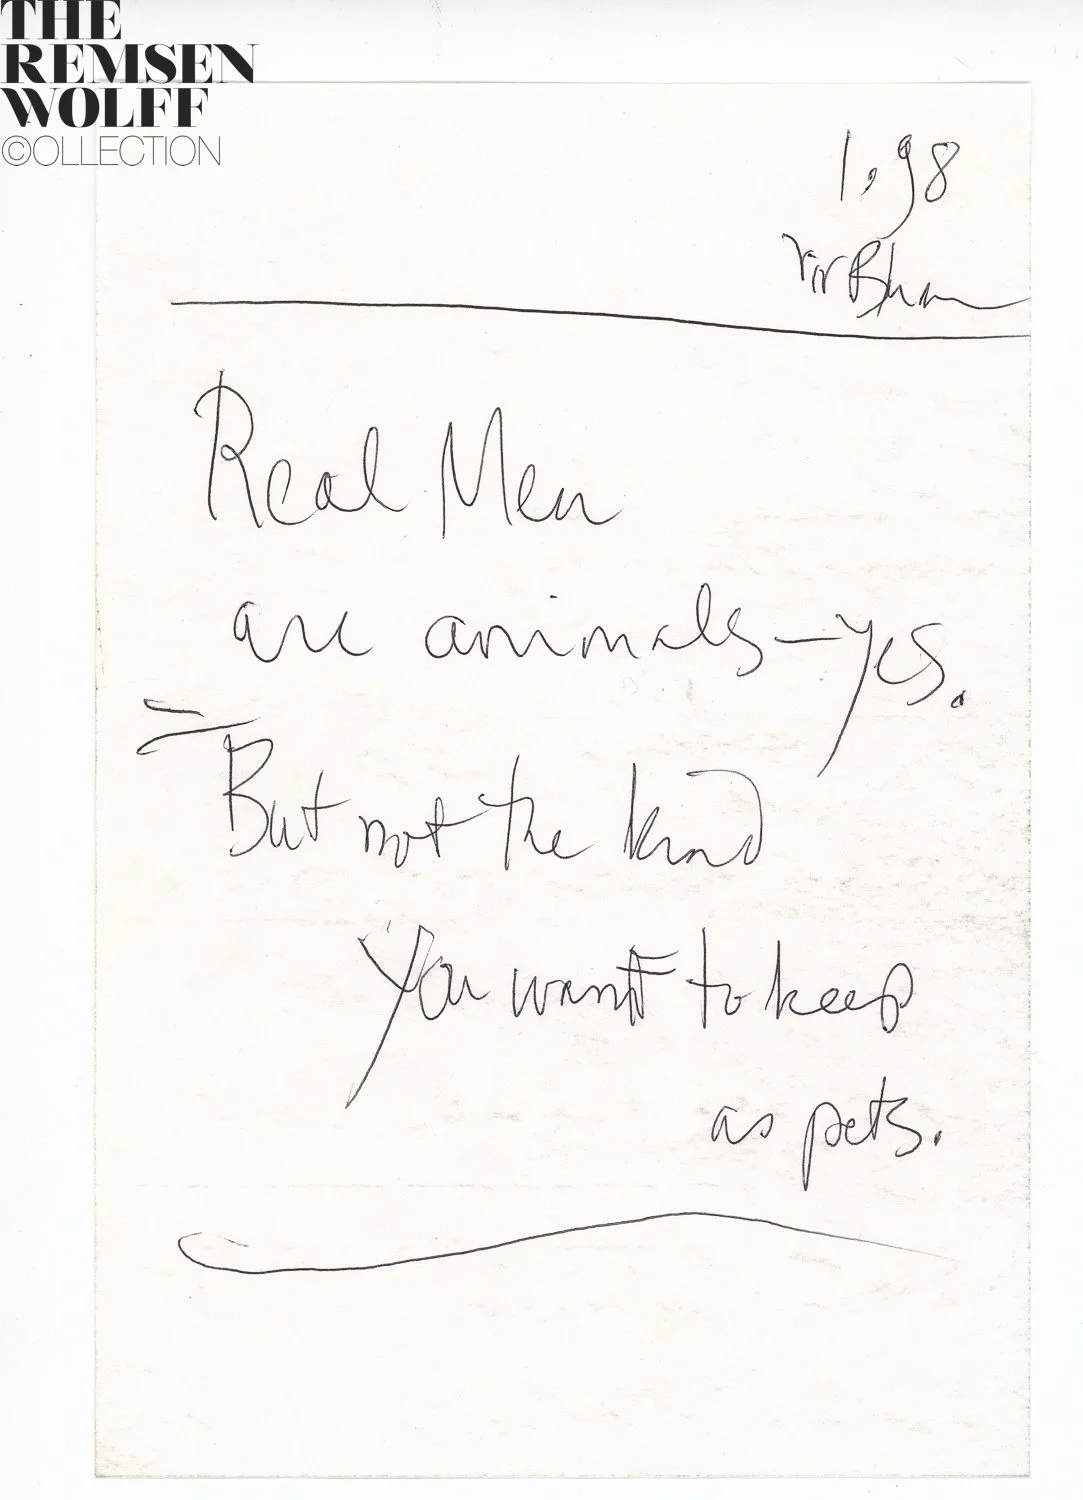 THE
REMSEN
WOLFF
©OLLECTION
1.98
Real Men
are animals—yes.
But not the kind
You want to keep
as pets.